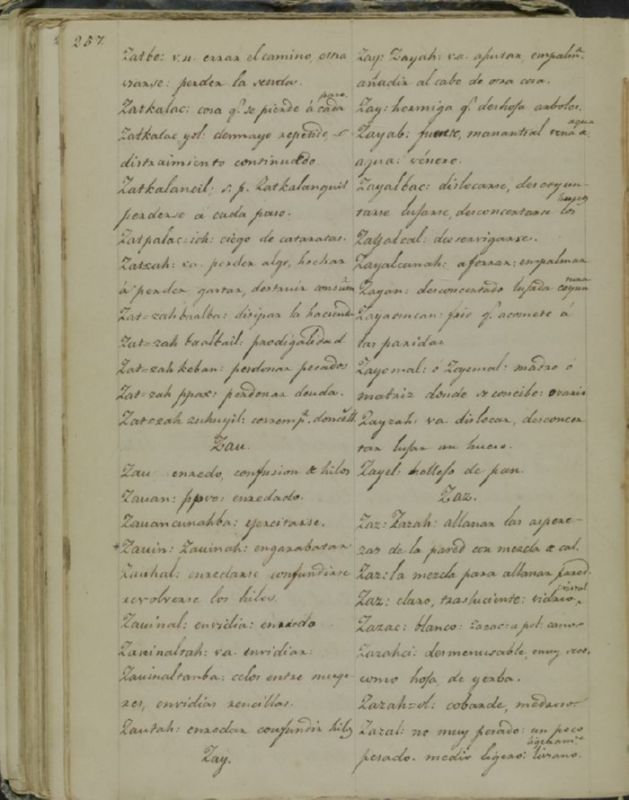 257.
Zatbe: v.n. errar el camino, extra
viarse: perder la senda.
Zatkalac: cosa q.e se pierde á cada paso.
Zatkalac yol: desmayo
distraimiento continuado.
Zatkalancil: s. p. Zatkalanquil
perderse a cada paso.
Zatpalac: ich: ciego de cataratas.
Zatzah: va. perder algo, hechar
á perder, gastar, destruir
Zat=zahbaalba: disipar la hacienda
Zat=zah baalbail: prodigalidad
Zat=zah keban: perdonar pecados
Zat=zah ppax: perdonar deuda.
Zatzah zuhuyil: corromp.r doncella
Zau.
Zau enredo, confusion de hilos
Zauan: ppvo: enredado.
Zauancunahba: ejercitarse.
Zauin: Zauinah: engarabatar
Zauhal: enredarse confundirse
revolverse los hilos.
Zauinal: envidia: enredo
Zauinaltah: va. envidiar.
Zauinaltamba: celos entre muge-
res, envidias rencillas.
Zautah: enredar confundir hilos
Zay.
Zay: Zayah: va. apuntar, empalm.r
añadir al cabo de otra cosa.
Zay: hormiga q.e deshoja arboles.
Zayab: fuente, manantial vena de agua
agua: vénero.
Zayalbac: dislocarse, descoyun-
tarse lujarse, desconcertarse los huesos
Zayalcal: desservigarse.
Zayalcunah: aforrar: empalmar
Zayan: desconcertado lujada
Zayaomcan: frio q.e acomete á
las paridas
Zayomal: ó Zoyemal: madre ó
matriz donde se concibe: ovario
Zayzah: va dislocar, desconcer
tar lujar un hueso.
Zayel: hollejo de pan.
Zaz.
Zaz: Zazah: allanar las aspere-
zas de la pared con mezcla de cal.
Zaz: la mezcla para allanar pared
Zaz: claro, trasluciente: vidrio, cristal
Zazac: blanco: Zazac=u pol: cano-
Zazahci: desmenusable, muy seco.
como hoja de yerba.
Zazah=ol: cobarde, medroso-
Zazal: no muy pesado: un poco
pesado. medio ligero: liviano. ligeram.te